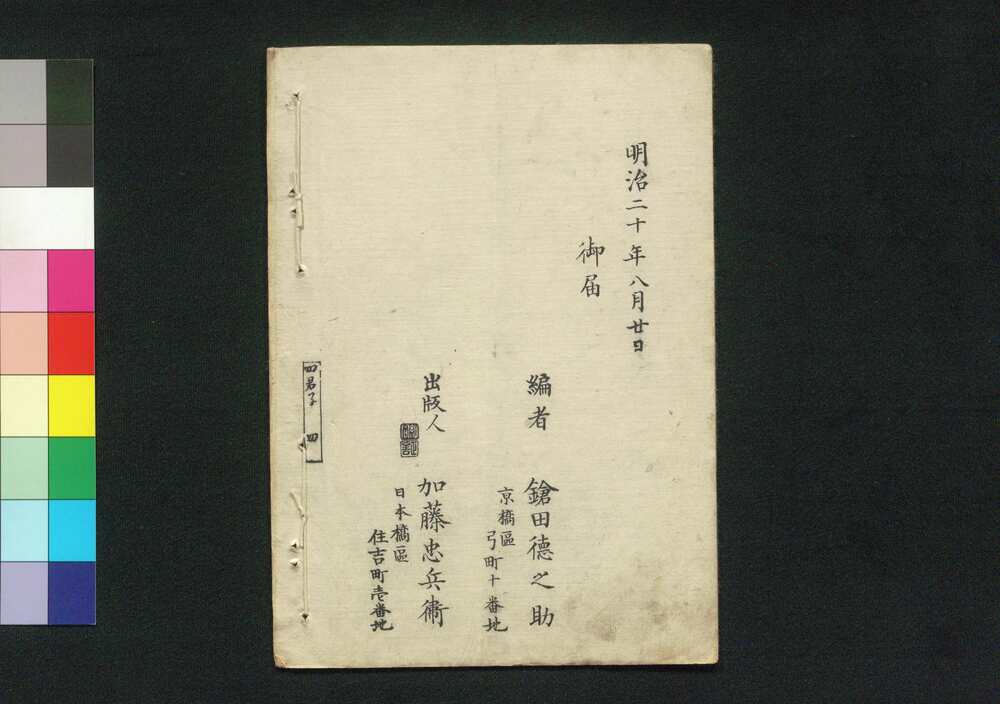 明治二十年八月廿日
御届
編者
鎗田德之助
京橋區
弓町十番地
出版人
加藤忠兵衛
日本橋區
住吉町壱番地
四君子 四